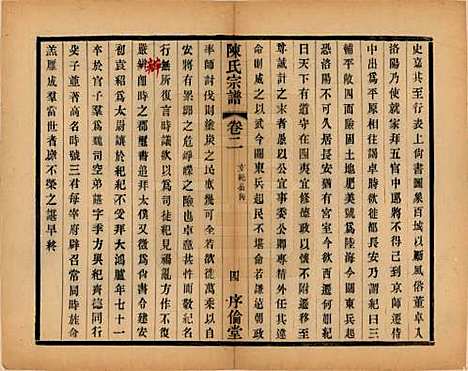 史嘉其至行表上尚書圖象百城以厲風俗董卓入
洛陽乃使就家拜五官中郎將不得已到京師遷侍
中出爲平原相往謁卓時欲徙都長安乃謂紀曰三
輔平敞四面險固土地肥美號爲陸海今關東兵起
恐洛陽不可久居長安猶有宮室今欲西遷何如紀
曰天下有道守在四夷宜修德政以懷不附遷移至
尊誠計之末者愚以公宜事委公卿專精外任其有
命則威之以武今關東兵起民不堪命若謙遠朝政
陳氏宗譜
卷二
四
序倫堂
率師討伐則塗炭之民庶幾可全若欲徙萬乘以自
安將有累卵之危崢嶸之險也卓意甚忤而敬紀名
行無所復言時議欲以爲司徒紀見禍亂方作不復
辦嚴即時之郡璽書追拜太僕又徵爲尚書令建安
初袁紹爲太尉讓於紀紀不受拜大鴻臚年七十一
卒於官子羣
弟諶字季方與紀齊德同行
父子並著高名時號三君每宰府辟召常同時旌命
羔雁成羣當世者靡不榮之諶早終